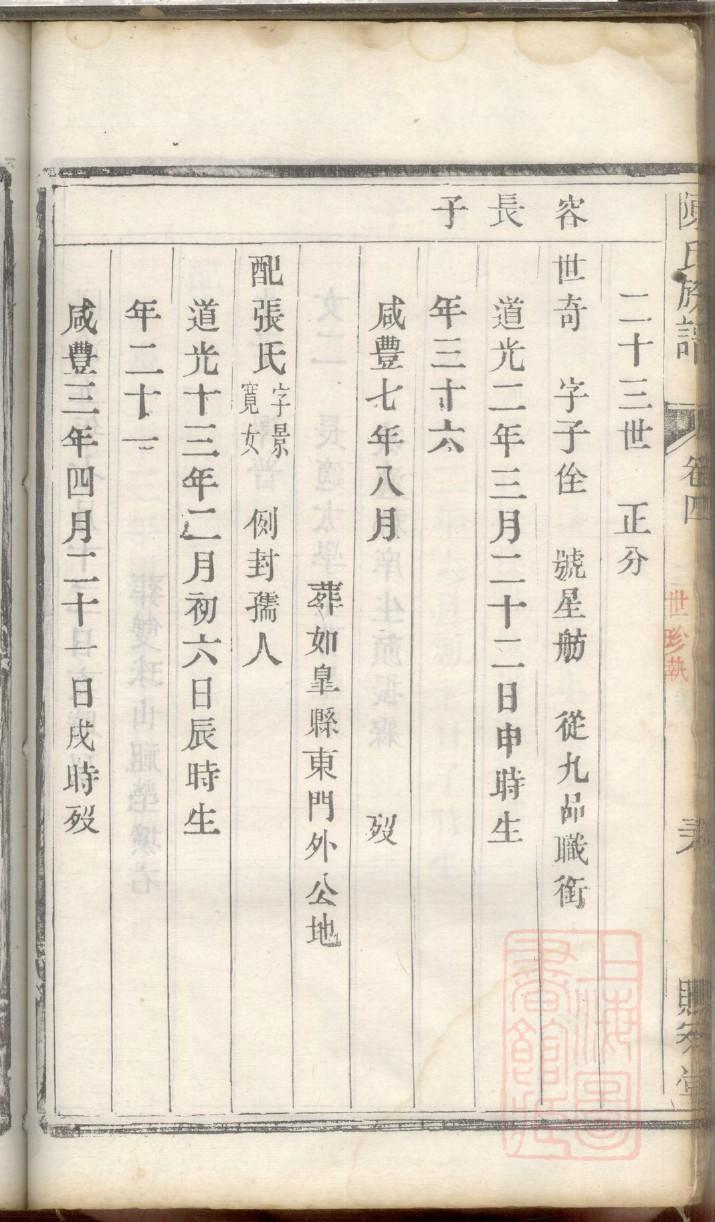 陳氏族譜 卷四
世珍執
容長子
二十三世 正分
世奇 字子佺 號星舫 從九品職銜
道光二年三月二十二日申時生
年三十六
咸豐七年八月 歿
葬如臯縣東門外公地
配張氏 字景寬女 例封孺人
道光十三年二月初六日辰時生
年二十一
咸豐三年四月二十日戌時歿
上海圖書館藏